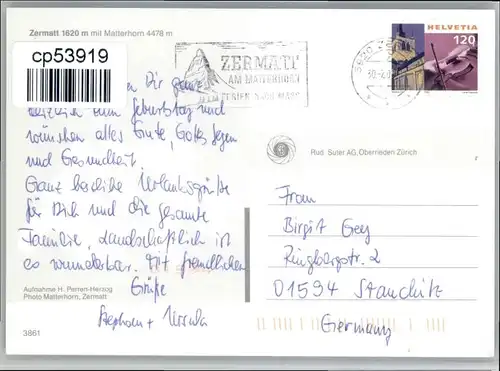 Zermatt 1620 m mit Matterhorn 4478 m
cp53919
HELVETIA
120
ZERMATT
AM MATTERHORN
FERIEN NACH MASS
Dir ganz
herzlich zum Geburtstag und
wünschen alles Gute, Gottes Segen
und Gesundheit.
Ganz herzliche Urlaubsgrüße
für Dich und die gesamte
Familie, Landschaftlich ist
es wunderbar. Mit freundlichen
Grüße
Stephan + Ursula
Aufnahme H. Perren-Herzog
Photo Matterhorn, Zermatt
3861
Rud. Suter AG, Oberrieden Zürich
Frau
Birgit Gey
Ringbergstr. 2
01594 Stauchitz
Germany